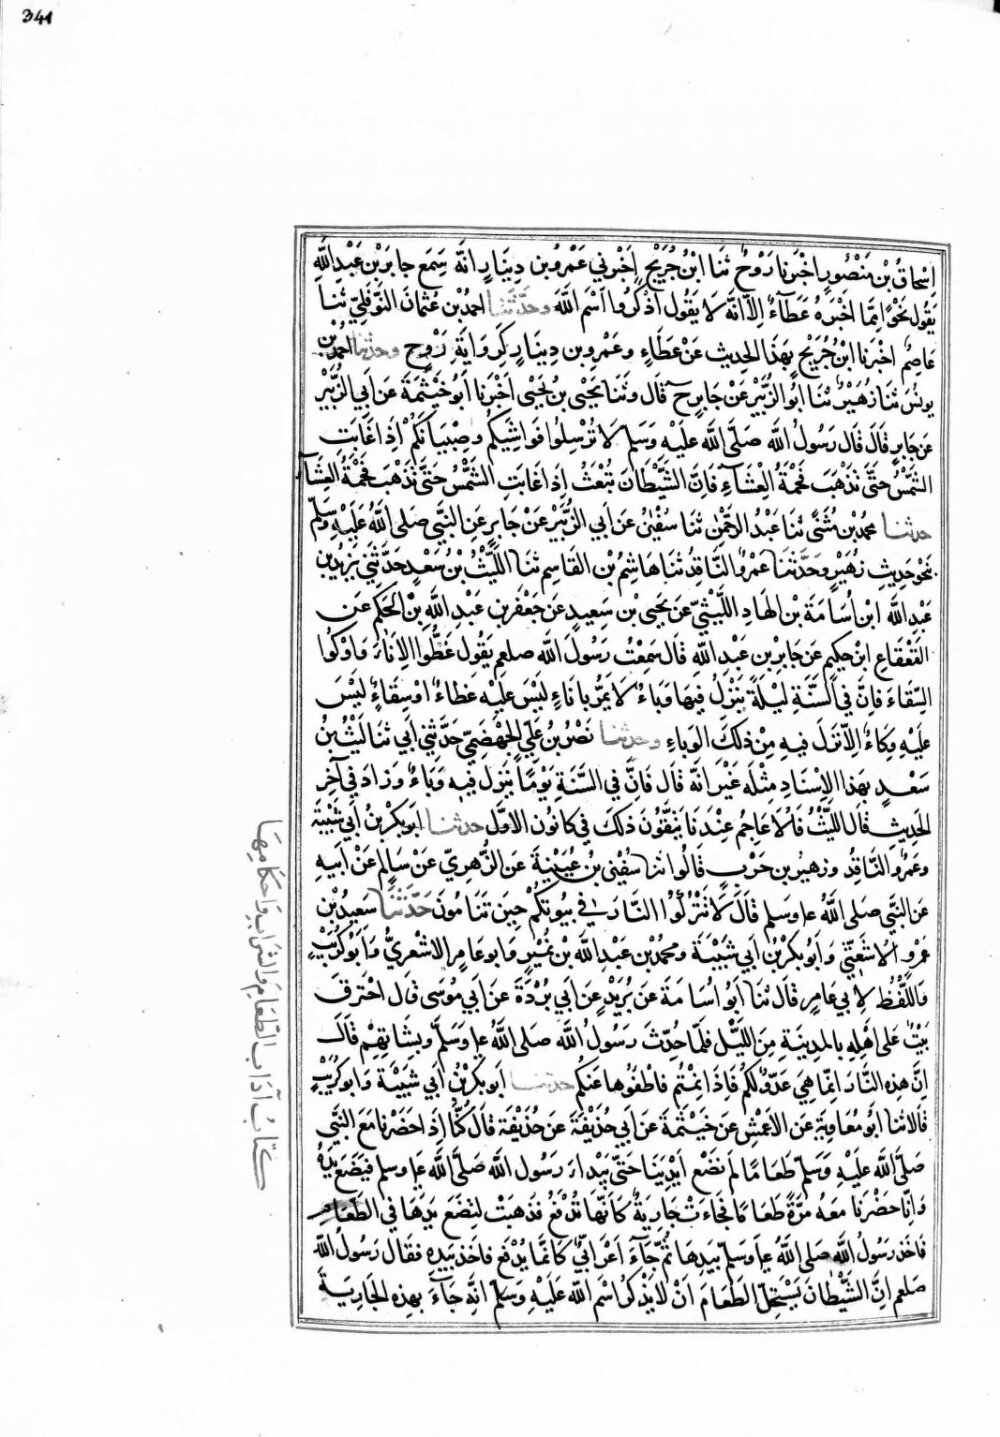 341
اِسْحاقُ بْنُ مَنْصُورٍ اخْبَرَنا رَوْحٌ ثَنَا ابْنُ جُرَيْجٍ اَخْبَرَني عَمْرُو بن دِينَارٍ انَّهُ سَمِعَ جابِرَ بْن عَبْدِ اللَّهِ
يَقُولُ نَحْوًا مِمَّا اخْبَرَهُ عَطَآءٌ اِلَّا انَّهُ لَا يَقُولُ اُذْكُرُوا اسْمَ اللَّهَ وحَدَّثَنا احمدُ بْن عُثْمانَ النَّوْفَلِيّ ثَنا
عاصِمٌ اخْبَرَنا ابْنُ جُرَيْجٍ بِهَذَا الحَدِيثِ عَنْ عَطَاءٍ وعَمْرِو بن دِينَارٍ كَرِوَايَةِ رَوْحٍ وحَدَّثنا احمدُ بْن
يونُسَ ثَنَا زُهَيْرٌ ثَنَا ابُو الزُّبَيْرِ عَنْ جابِرٍ ح قَالَ وثَنَا يَحْيَى بْن يَحْيَى اَخْبَرَنا ابُو خَيْثَمَةَ عَن اَبي الزُّبَيْرِ
عَن جَابِرٍ قَالَ قَالَ رَسُولُ اللَّه صَلَّى اللَّه عَلَيْهِ وَسَلَّم لَا تُرْسِلُوا فَوَاشِيَكُمْ وَصِبْيَانَكُمْ اِذَا غَابَتِ
الشَّمْسُ حَتَّى تَذْهَبَ فَحْمَةُ الْعِشَآءِ فَاِنَّ الشَّيْطَانَ تُبْعَثُ اِذَا غَابَتِ الشَّمْسُ حَتَّى تَذْهَبَ فَحْمَةُ العِشآءِ
حدثنا محمدُ بْن مُثَنَّى ثَنَا عَبْدُ الرَّحْمٰنِ ثَنَا سُفْيٰنُ عَن اَبي الزُّبَيْرِ عَنْ جَابِرٍ عَنِ النَّبِيِّ صَلى اللَّهُ عَلَيْهِ وَسَلَّم
نَحْوَ حَدِيثِ زُهَيْرٍ وحَدَّثَنَا عَمْرٌو النَّاقِدُ ثَنَا هَاشِمُ بْن القَاسِمِ ثَنَا اللَّيْثُ بْنُ سَعْدٍ حَدَّثَني يَزِيدُ بن
عَبْدِ اللَّه ابْن اُسَامَةَ بْنِ الهَادِ اللَّيْثِيّ عَن يَحيى بْن سَعِيدٍ عَن جَعْفَرِ بن عَبْدِ اللَّه بْنِ الحَكَمِ عَن
القَعْقَاعِ ابْن حَكِيمٍ عَن جَابِرِ بن عَبْدِ اللَّهِ قَالَ سَمِعْتُ رَسُولَ اللَّه صلعم يَقُول غَطُّوا الاِنَاءَ وَاوْكُوا
السِّقَاءَ فَاِنَّ في السَّنَةِ لَيْلَةً يَنْزِلُ فِيهَا وَبَاءٌ لَا يَمُرُّ باِنَاءٍ لَيْسَ عَلَيْهِ غِطَاءٌ اوْ سِقَاءٍ لَيْسَ
عَلَيْهِ وِكَاءٌ اِلَّا نَزَلَ فِيهِ مِنْ ذلِكَ الوَبَاءِ وحدثنا نَصْرُ بْنُ عَلِيٍّ الجَهْضَمِيّ حَدَّثَني اَبي ثَنا لَيْثُ بْنُ
سَعْدٍ بِهَذا الاِسْنَادِ مِثْلَه غَيْرَ انَّهُ قال فَاِنَّ في السَّنَةِ يَوْمًا يَنْزِل فِيهِ وَبَاءٌ وَزَادَ في آخِرِ
الحَدِيثِ قالَ اللَّيْثُ فَالاَعاجِمُ عِنْدَنَا يَتَّقُونَ ذلكَ في كَانُونَ الاوَّل حدثنا ابُو بَكْرِ بْنُ ابي شَيْبَةَ
وعَمْرٌو النَّاقِدُ وزهيرُ بن حَرْبٍ قَالُوا ثنا سُفْيٰنُ بن عُيَيْنَةَ عَنِ الزُّهْرِيِّ عَنْ سَالِمٍ عَنْ اَبِيهِ
عَن النَّبِيِّ صَلى اللَّهُ ع‍ وسلم قَالَ لَا تَتْرُكُوا النَّارَ في بُيُوتِكُمْ حِينَ تَنَامُونَ حَدَّثَنَا سَعِيدُ بْن
عَمْرٍو الاَشْعَثِيُّ وَابُو بَكْرِ بْن اَبي شَيْبَةَ ومحمدُ بْن عَبْدِ اللَّه بْن نُمَيْرٍ وَابو عَامِرٍ الاَشْعَرِيُّ وَابُو كُرَيْبٍ
وَاللَّفْظُ لِاَبي عَامِرٍ قالَ ثَنَا ابُو اُسَامَةَ عَن بُرَيْدٍ عَن اَبي بُرْدَةَ عَن اَبي مُوسَى قال احْتَرَقَ
بَيْتٌ عَلَى اَهْلِهِ بِالمَدِينَةِ مِنَ اللَّيْلِ فَلَمَّا حُدِّثَ رَسُولُ اللَّه صَلَى اللَّهُ ع‍ وَسَلَّم وبِشَانِهِمْ قَالَ
اِنَّ هذِهِ النَّارَ اِنَّما هِيَ عَدُوٌّ لَكُمْ فَاِذَا نِمْتُمْ فَاطْفِئُوهَا عَنْكُمْ حدثنا ابُو بكْرِ بْن اَبي شَيْبَةَ وَابو كُرَيْبٍ
قَالَا ثنا ابُو مُعَاوِيَةَ عَن الاَعْمَشِ عَن خَيْثَمَةَ عَن اَبي حُذَيْفَةَ عَن حُذَيْفَةَ قَالَ كُنَّا اِذَا حَضَرْنا مَعَ النَّبِيّ
صَلَّى اللَّه عَلَيْهِ وَسَلَّم طَعَامًا لَم نَضَعْ اَيْدِيَنَا حَتَّى يَبْدَاَ رَسُولُ اللَّه صَلَّى اللَّه ع‍ وسلم فَيَضَعُ يَدَهُ
وَاِنَّا حَضَرْنَا مَعَهُ مَرَّةً طَعَامًا فَجَاءَتْ جَارِيَةٌ كَاَنَّهَا تُدْفَعُ فَذَهَبَتْ لِتَضَعَ يَدَهَا في الطَّعَامِ
فَاخَذَ رَسُولُ اللَّهِ صَلى اللَّهُ ع‍ وَسلّم بِيَدِهَا ثُمَّ جَآءَ اَعْرَابِيٌّ كَاَنَّمَا يُدْفَعُ فَاخَذَ بِيَدِهِ فَقَالَ رَسُولُ اللَّهِ
صلعم اِنَّ الشَّيْطَانَ يَسْتَحِلُّ الطَّعَامَ اَنْ لَا يُذْكَرَ اسْمُ اللَّه عَلَيْهِ وَسَلَّم اِنَّهُ جَآءَ بِهَذِهِ الجَارِيَةَ
كتاب آداب الطعام والشراب واحكامها